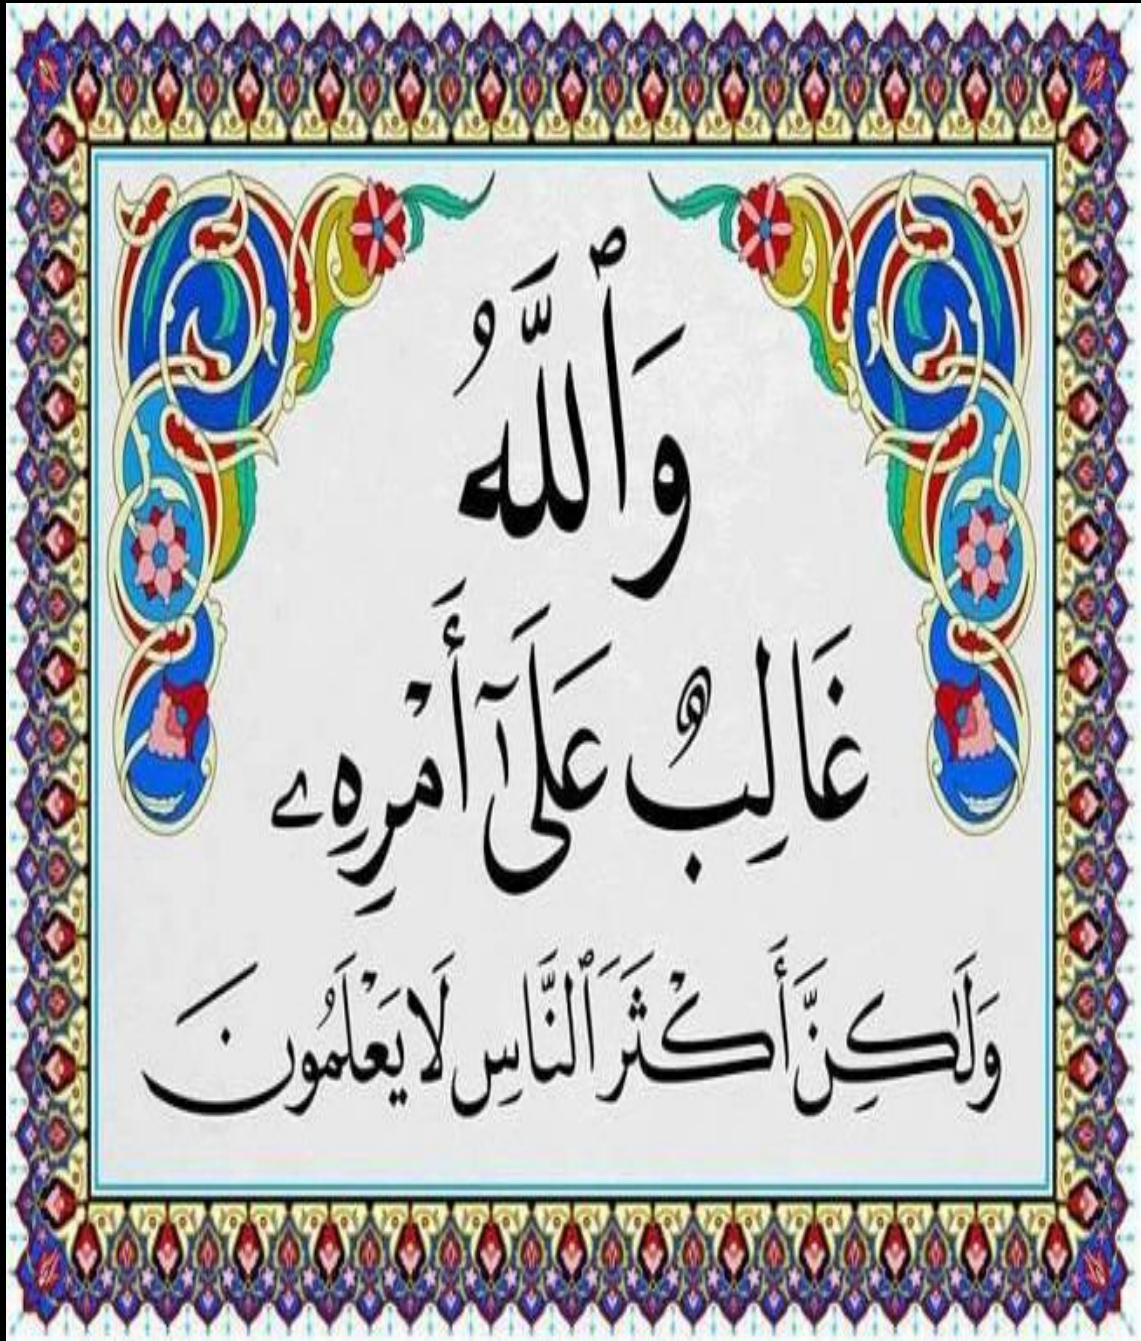 وَٱللَّهُ
غَالِبٌ عَلَىٰٓ أَمْرِهِۦ
وَلَٰكِنَّ أَكْثَرَ ٱلنَّاسِ لَا يَعْلَمُونَ